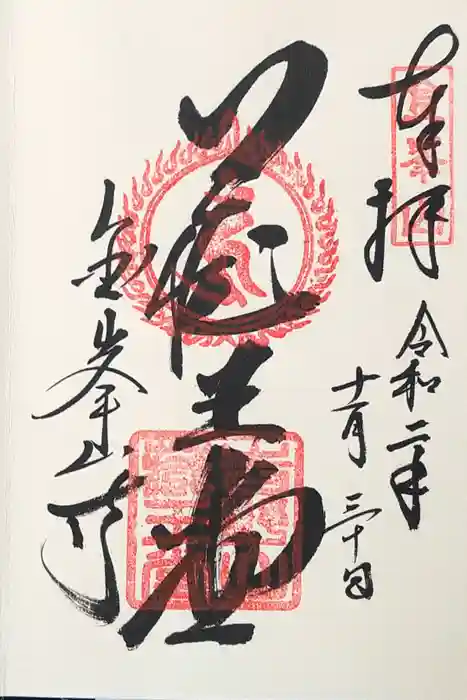 奉拝
令和二年
十一月三十日
蔵王堂
金峯山寺